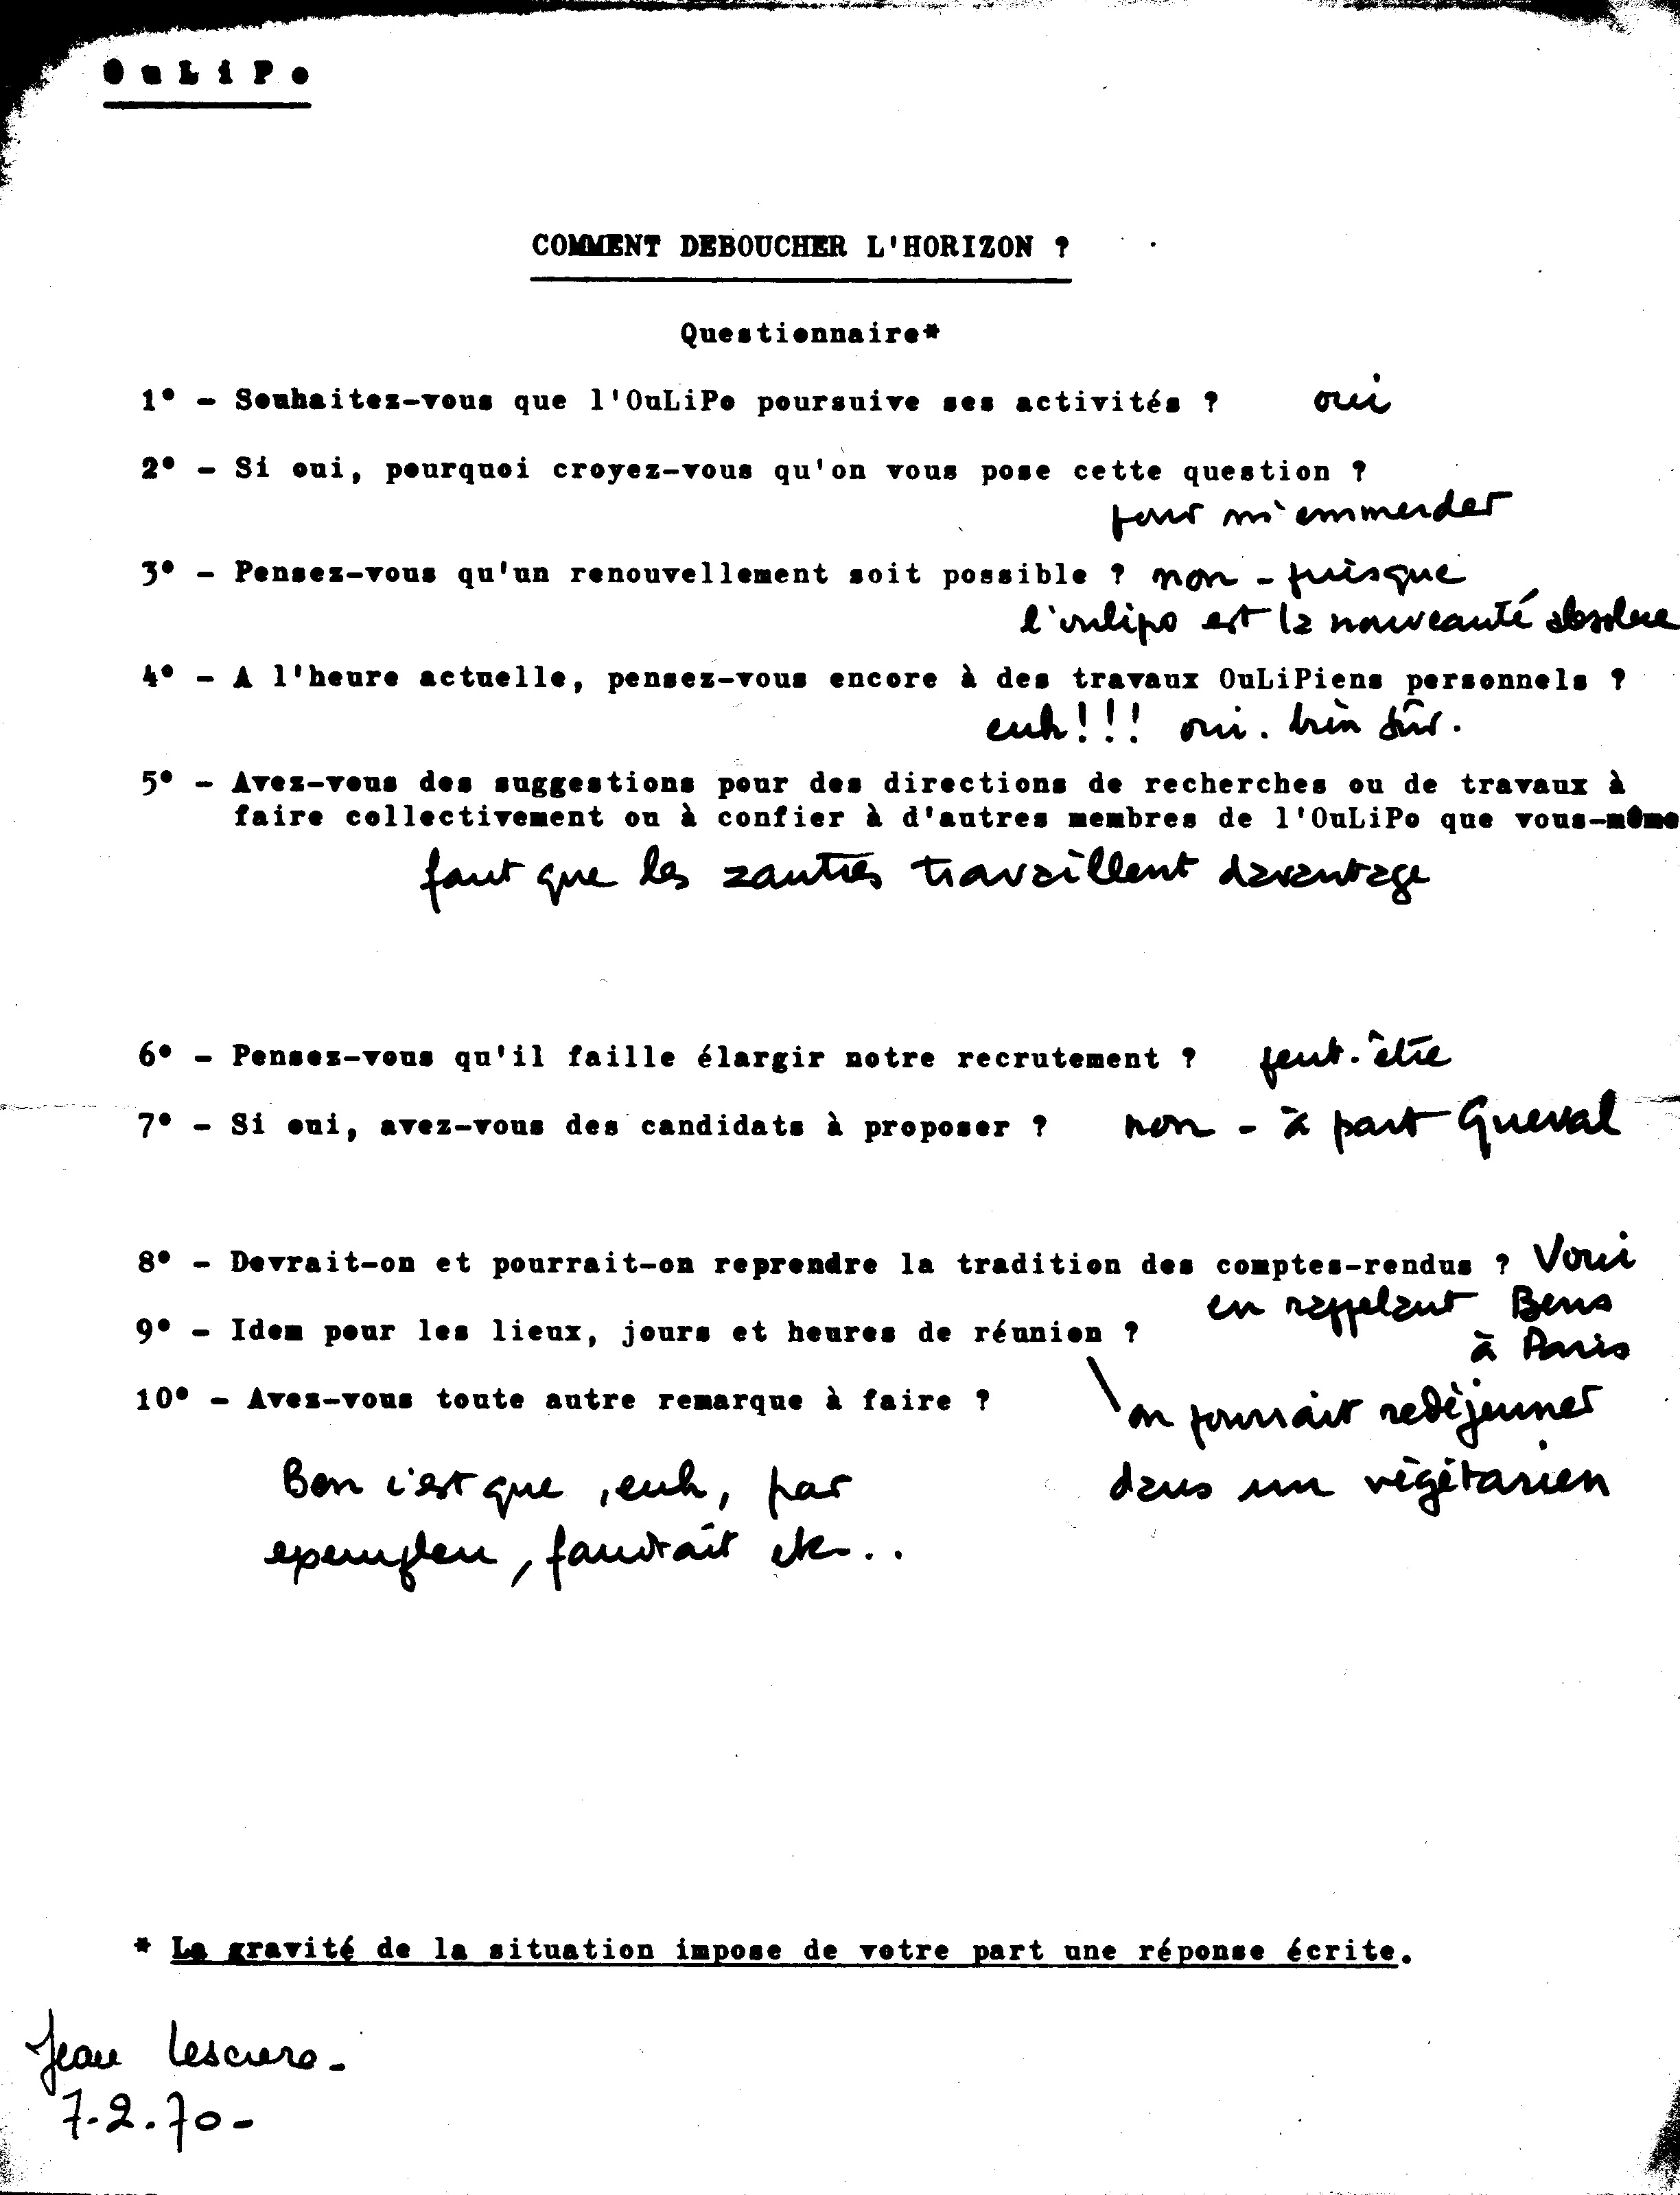 OuLiPo
COMMENT DEBOUCHER L'HORIZON ?
Questionnaire*
1° - Souhaitez-vous que l'OuLiPo poursuive ses activités ? oui
2° - Si oui, pourquoi croyez-vous qu'on vous pose cette question ?
pour m'emmerder
3° - Pensez-vous qu'un renouvellement soit possible ? non - puisque
l'oulipo est la nouveauté absolue
4° - A l'heure actuelle, pensez-vous encore à des travaux OuLiPiens personnels ?
euh!!! oui. bien sûr.
5° - Avez-vous des suggestions pour des directions de recherches ou de travaux à
faire collectivement ou à confier à d'autres membres de l'OuLiPo que vous-même
faut que les zautres travaillent davantage
6° - Pensez-vous qu'il faille élargir notre recrutement ? peut-être
7° - Si oui, avez-vous des candidats à proposer ? non - à part Queval
8° - Devrait-on et pourrait-on reprendre la tradition des comptes-rendus ? Voui
en rappelant Bens
à Paris
9° - Idem pour les lieux, jours et heures de réunion ?
on pourrait redéjeuner
dans un végétarien
10° - Avez-vous toute autre remarque à faire ?
Ben c'est que, euh, par
exempleu, faudrait etc...
* La gravité de la situation impose de votre part une réponse écrite.
Jean Lescure -
7.2.70 -